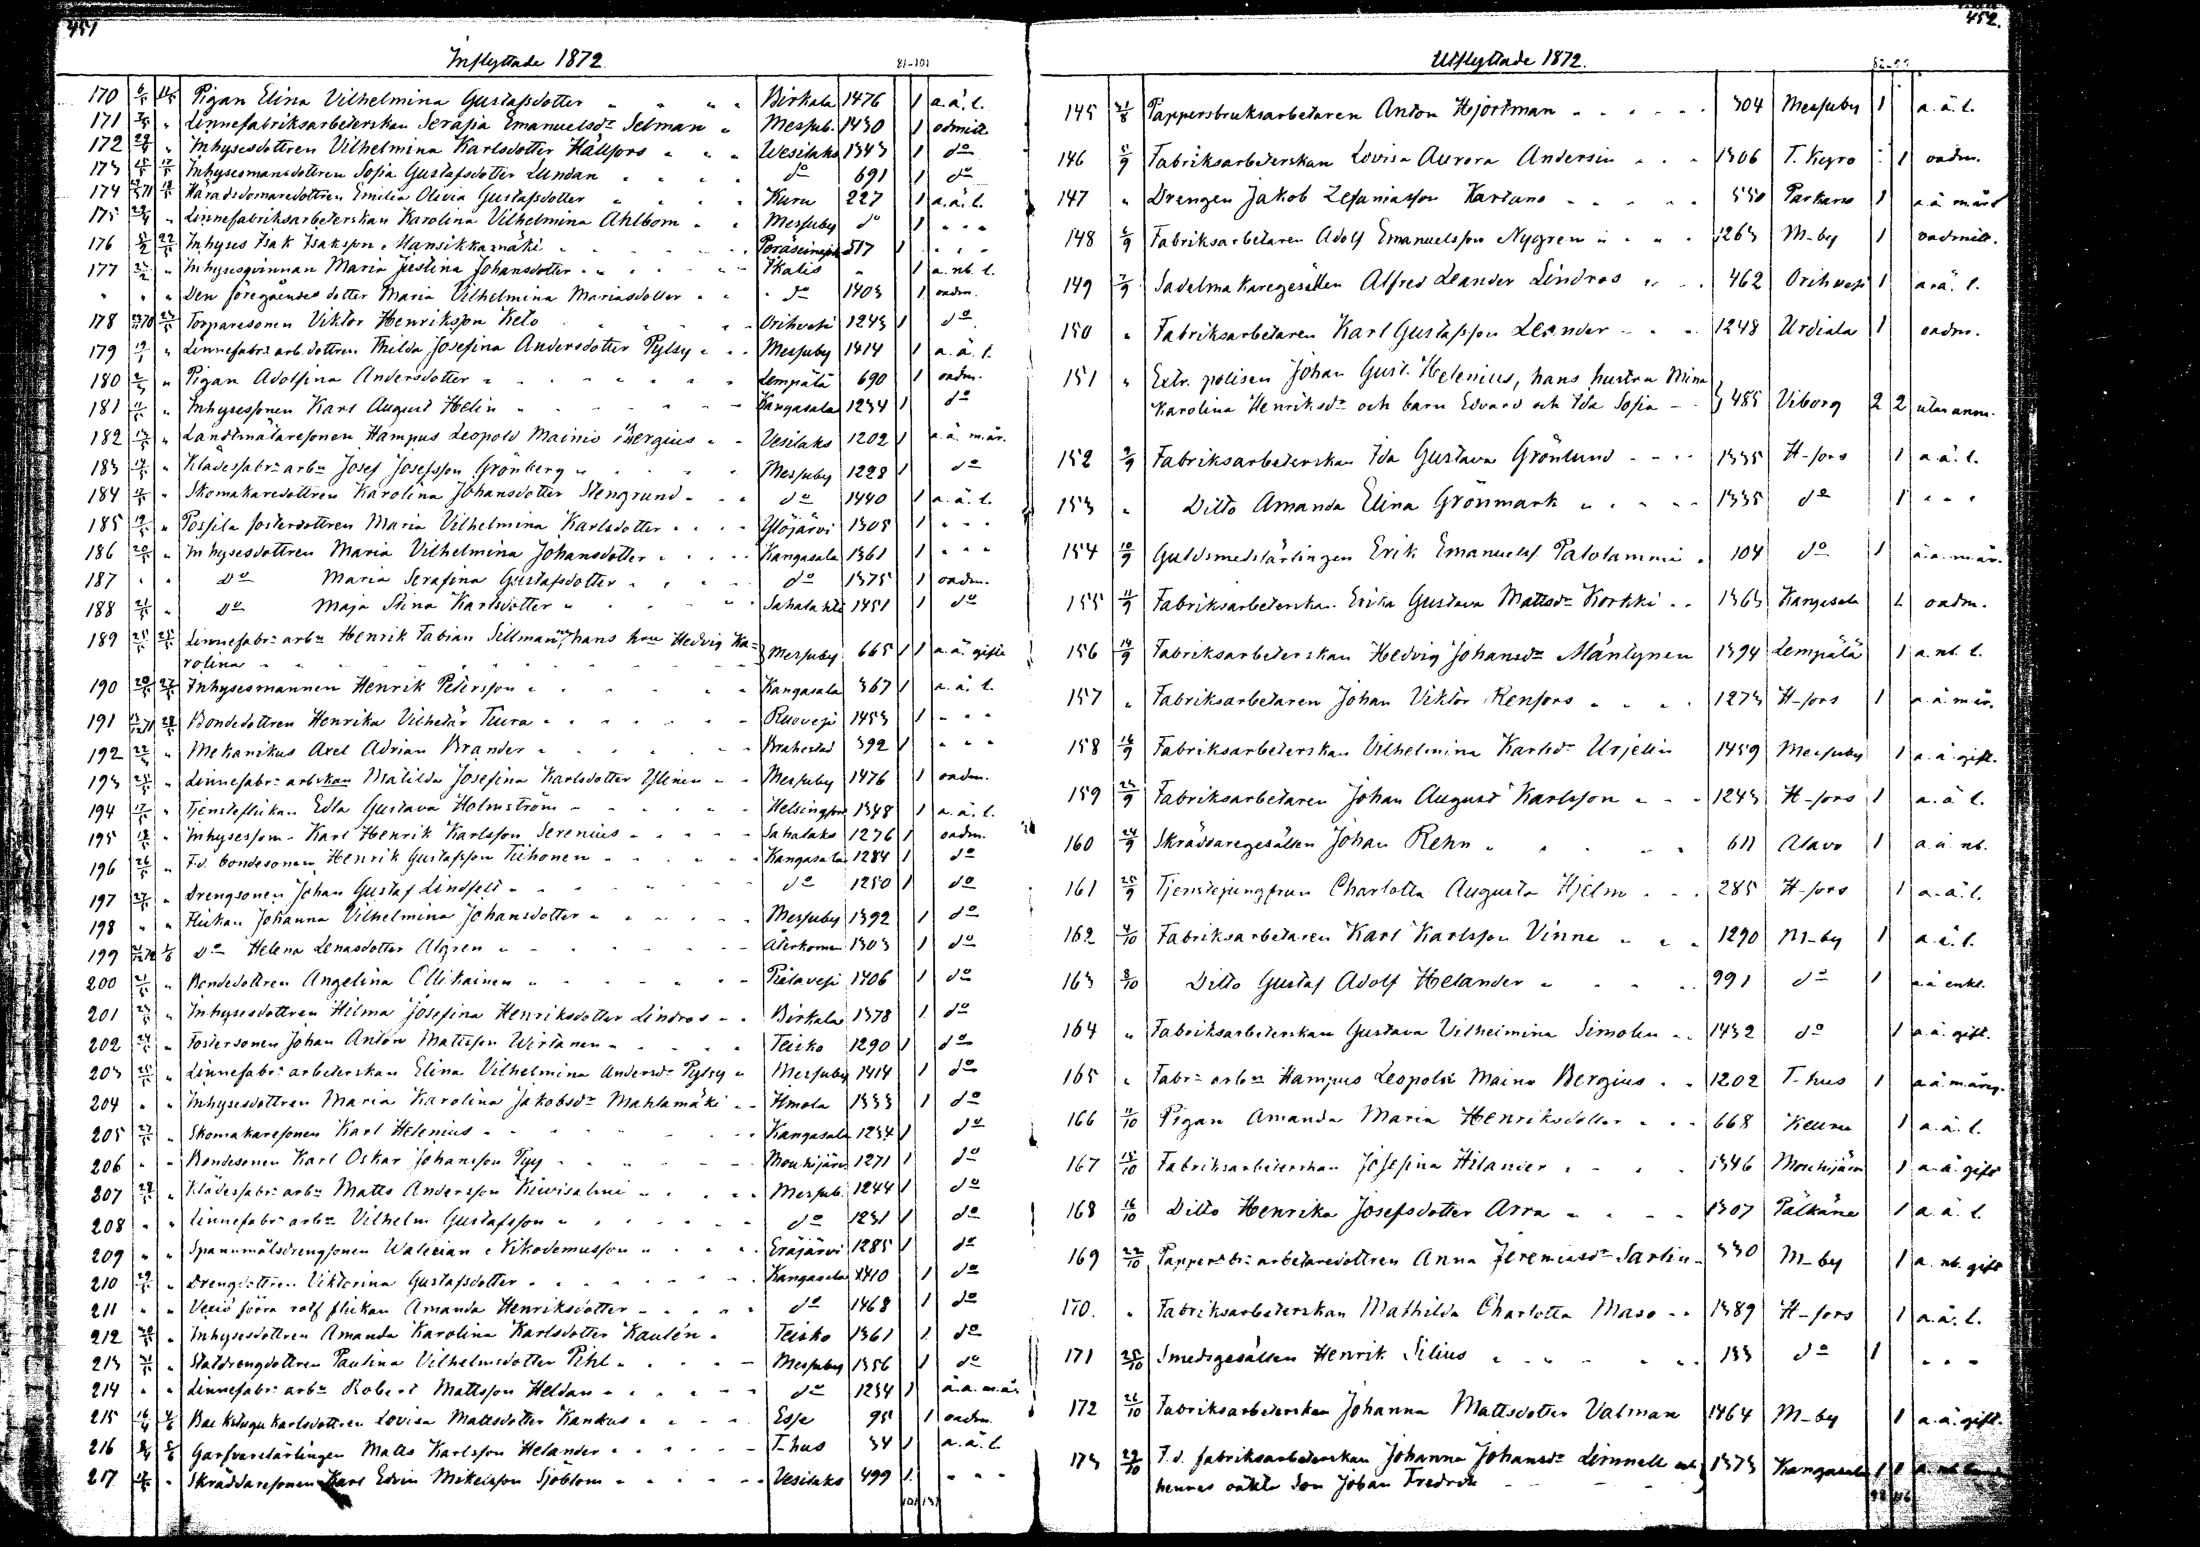 451
Inflyttade 1872.
81-101
170 Pigan Elina Vilhelmina Gustafsdotter Birkala 1476 1 a.ä.l.
171 Linnefabriksarbeterskan Serafia Emanuelsdr Selman Messub. 1430 1 odmitt.
172 Inhysesdottren Vilhelmina Karlsdotter Hällfors Wesilaks 1343 1 do
173 Inhysesmansdottren Sofia Gustafsdotter Lundan do 691 1 do
174 Häradsdomaredottren Emilia Olivia Gustafsdotter Kuru 227 1 a.ä.l.
175 Linnefabriksarbeterskan Karolina Vilhelmina Ahlbom Messuby do 1 " " "
176 Inhyses Isak Isaksson Hansikkamäki 517 1 " " "
177 Inhysesqvinnan Maria Justina Johansdotter Ikalis " 1 a.nb.l.
" " " Den föregåendes dotter Maria Vilhelmina Mariasdotter do 1403 1 oadm.
178 Torparesonen Viktor Henriksson Keto Orihvesi 1243 1 do
179 Linnefabrs arb.dottren Thilda Josefina Andersdotter Pylsy Messuby 1414 1 a.ä.l.
180 Pigan Adolfina Andersdotter Lempälä 690 1 oadm.
181 Inhysessonen Karl August Helin Kangasala 1234 1 do
182 Landtmätaresonen Hampus Leopold Mainio Bergius Vesilaks 1202 1 a.ä.mär.
183 Klädesfabrs arbn Josef Josefsson Grönberg Messuby 1228 1 do
184 Skomakaredottren Karolina Johansdotter Stengrund do 1440 1 a.ä.l.
185 Possila fosterdottren Maria Vilhelmina Karlsdotter Ylöjärvi 1305 1 " " "
186 Inhysesdottren Maria Vilhelmina Johansdotter Kangasala 1361 1 " " "
187 " " Do Maria Serafina Gustafsdotter do 1375 1 oadm.
188 Do Maja Stina Karlsdotter 1451 1 do
189 Linnefabrs arbn Henrik Fabian Sillman, hans hru Hedvig Ka-
rolina Messuby 665 1 1 a.ä. gifte
190 Inhysesmannen Henrik Petersson Kangasala 367 1 a.ä.l.
191 Bondedottren Henrika Vilhelär Tiura Ruovesi 1453 1 " " "
192 Mekanikus Axel Adrian Brander Brahestad 392 1 " " "
193 Linnefabrs arbskan Matilda Josefina Karlsdotter Ylinen Messuby 1476 1 oadm.
194 Tjensteflickan Edla Gustava Holmström Helsingfors 1348 1 a.ä.l.
195 Inhysesson Karl Henrik Karlsson Serenius Sahalaks 1276 1 oadm.
196 F.d. bondesonen Henrik Gustafsson Tiihonen Kangasala 1284 1 do
197 Drengsonen Johan Gustaf Lindfelt do 1250 1 do
198 " " Flickan Johanna Vilhelmina Johansdotter Messuby 1392 1 do
199 Do Helena Lenasdotter Algren Återkomn. 1303 1 do
200 Bondedottren Angelina Ollikainen Pielavesi 1406 1 do
201 Inhysesdottren Hilma Josefina Henriksdotter Lindros Birkala 1378 1 do
202 Fostersonen Johan Anton Mattsson Wirtanen Teisko 1290 1 do
203 Linnefabrs arbeterskan Elina Vilhelmina Andersdr Pylsy Messuby 1414 1 do
204 " " Inhysesdottren Maria Karolina Jakobsdr Mahlamäki Hmola 1333 1 do
205 Skomakaresonen Karl Helenius Kangasala 1234 1 do
206 " " Bondesonen Karl Oskar Johansson Pyy Mouhijärvi 1271 1 do
207 Klädesfabrs arbn Matts Andersson Kiwisalmi Messub. 1244 1 do
208 " " Linnefabrs arbn Vilhelm Gustafsson do 1231 1 do
209 " " Spannmålsdrengsonen Walerian Nikodemusson Eräjärvi 1285 1 do
210 Drengdottren Viktorina Gustafsdotter Kangasala 1410 1 do
211 " " flickan Amanda Henriksdotter do 1468 1 do
212 Inhysesdottren Amanda Karolina Karlsdotter Kaulén Teisko 1361 1 do
213 Statdrengdottren Paulina Vilhelmsdotter Pihl Messuby 1356 1 do
214 " " Linnefabrs arbn Robert Mattsson Heldan do 1234 1 ä.a.mär.
215 Lovisa Mattsdotter Kankus Esse 95 1 oadm.
216 Garfvarelärlingen Matts Karlsson Helander T-hus 34 1 a.ä.l.
217 Skräddaresonen Karl Edvin Mikelsson Sjöblom Vesilaks 499 1 " " "
452.
Utflyttade 1872.
145 Pappersbruksarbetaren Anton Hjortman 304 Messuby 1 a.ä.l.
146 5/9 Fabriksarbeterskan Lovisa Aurora Andersin 1306 T. Kyro 1 oadm.
147 " Drengen Jakob Zefaniasson Kartano 550 Parkano 1 a.ä. märs
148 6/9 Fabriksarbetaren Adolf Emanuelsson Nygren 1263 M-by 1 oadmitt.
149 7/9 Sadelmakaregesällen Alfred Leander Lindros 462 Orihvesi 1 a.ä.l.
150 " Fabriksarbetaren Karl Gustafsson Leander 1248 Urdiala 1 oadm.
151 " Extr. polisen Johan Gust. Helenius, hans hustru Mina
Karolina Henriksdr och barn Edvard och Ida Sofia 485 Viborg 2 2 utan anm.
152 9/9 Fabriksarbeterskan Ida Gustava Grönlund 1335 H-fors 1 a.ä.l.
153 " Ditto Amanda Elina Grönmark 1335 do 1 " " "
154 10/9 Guldsmedslärlingen Erik Emanuelss Palolammi 104 do 1 ä.a.mär.
155 11/9 Fabriksarbeterskan Erika Gustava Mattsdr Korkki 1363 Kangasala 1 oadm.
156 14/9 Fabriksarbeterskan Hedvig Johansdr Mäntynen 1394 Lempälä 1 a.nb.l.
157 " Fabriksarbetaren Johan Viktor Renfors 1273 H-fors 1 a.ä.mär.
158 16/9 Fabriksarbeterskan Vilhelmina Karlsdr Urjelin 1459 Messuby 1 a.ä.gift.
159 23/9 Fabriksarbetaren Johan August Karlsson 1243 H-fors 1 a.ä.l.
160 24/9 Skräddaregesällen Johan Rehn 611 Alavo 1 a.ä.nb.
161 25/9 Tjenstejungfrun Charlotta Augusta Hjelm 285 H-fors 1 a.ä.l.
162 4/10 Fabriksarbetaren Karl Karlsson Vinne 1290 M-by 1 a.ä.l.
163 8/10 Ditto Gustaf Adolf Helander 991 do 1 a.ä enkl.
164 " Fabriksarbeterskan Gustava Vilhelmina Simolin 1432 do 1 a.ä.gift.
165 " Fabrs arbn Hampus Leopold Maino Bergius 1202 T-hus 1 a.ä.märg.
166 11/10 Pigan Amanda Maria Henriksdotter 668 Keuru 1 a.ä.l.
167 15/10 Fabriksarbeterskan Josefina Hilander 1346 Mouhijärvi 1 a.ä gift
168 16/10 Ditto Henrika Josefsdotter Arra 1307 Pälkäne 1 a.ä.l.
169 22/10 Pappersbrs arbetaredottren Anna Jeremiasdr Sarlin 330 M-by 1 a.nb.gift
170. " Fabriksarbeterskan Mathilda Charlotta Maso 1389 H-fors 1 a.ä.l.
171 25/10 Smedsgesällen Henrik Silius 133 do 1 " " "
172 26/10 Fabriksarbeterskan Johanna Mattsdotter Valman 1464 M-by 1 a.ä.gift.
173 29/10 F.d. fabriksarbeterskan Johanna Johansdr Limnell och 1373 Kangasala 1 1
hennes oäkta son Johan Fredrik